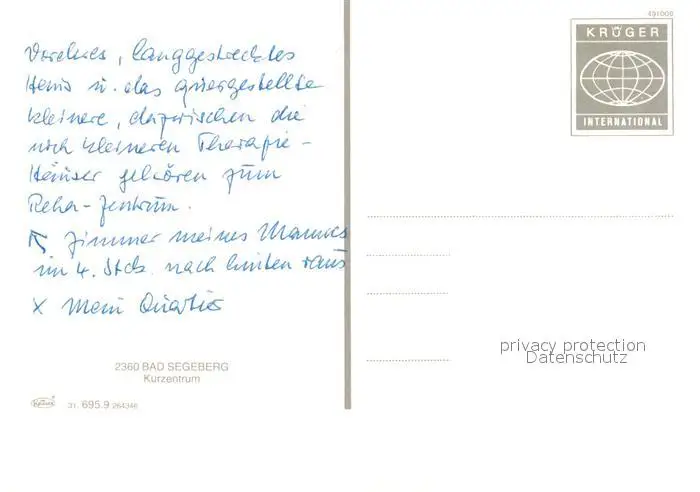 Vorderes, langgestrecktes
Haus u. das quergestellte
kleinere, dazwischen die
noch kleineren Therapie-
Häuser gehören zum
Reha-Zentrum.
↖ Zimmer meines Mannes
im 4. Stck. nach hinten raus
x Mein Quartier
2360 BAD SEGEBERG
Kurzentrum
Krüger
31. 695.9 264346
491000
KRÜGER
INTERNATIONAL
privacy protection
Datenschutz